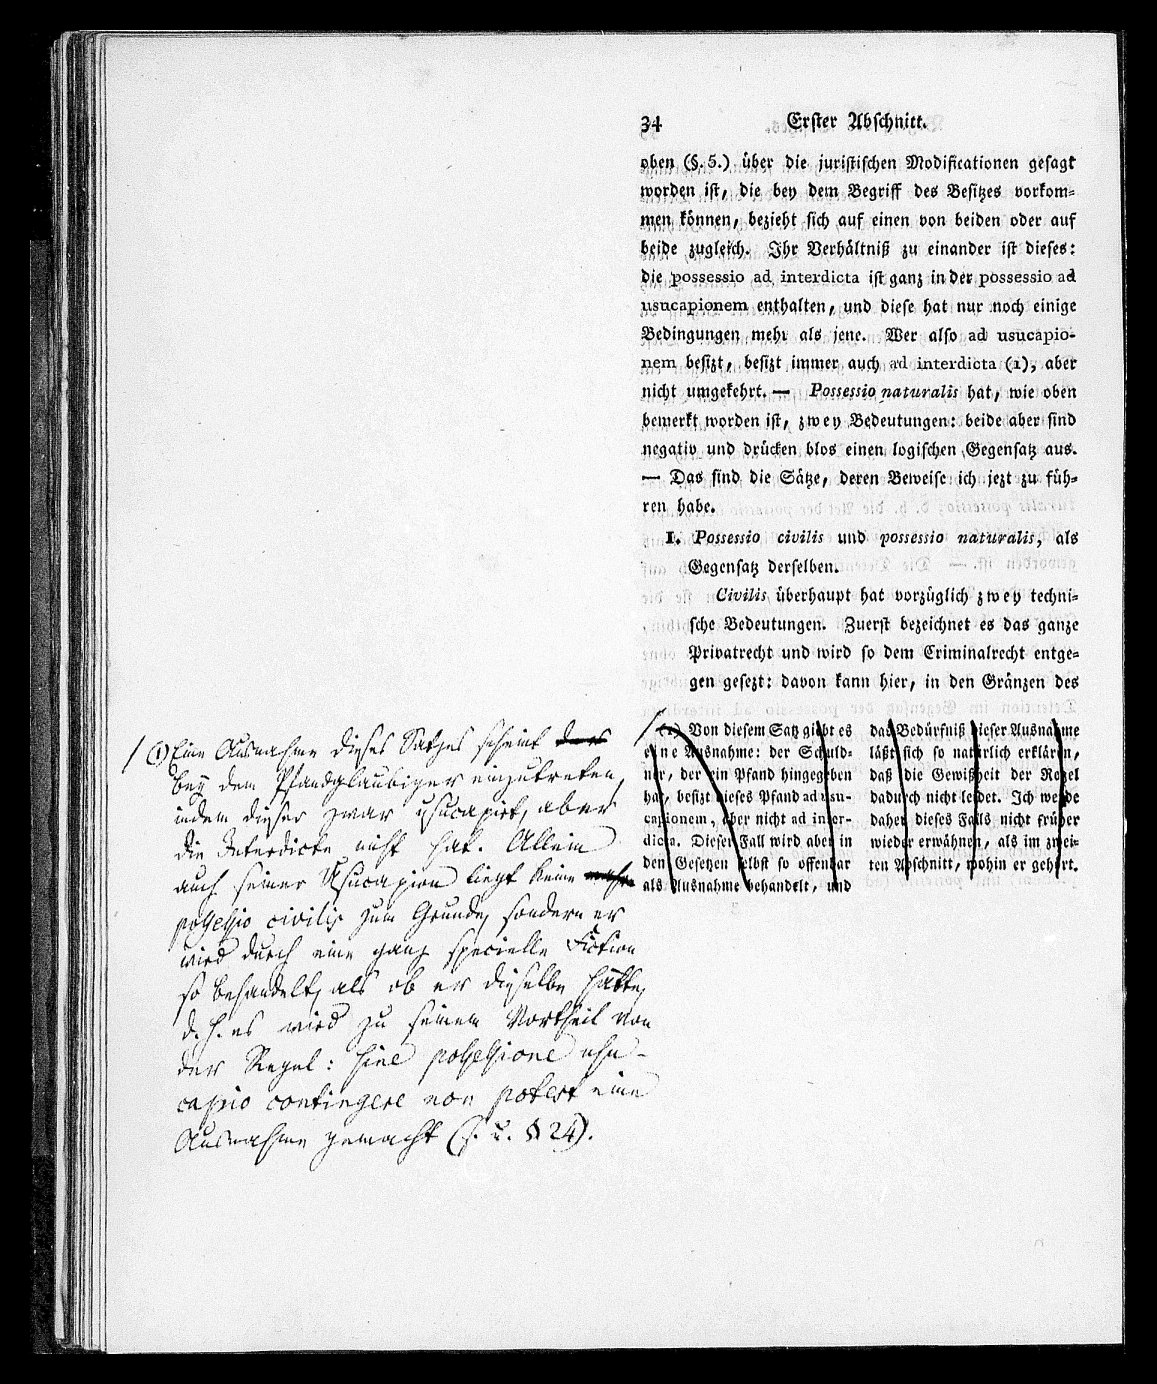 34 Erster Abschnitt.
oben (§. 5.) über die juristischen Modificationen gesagt
worden ist, die bey dem Begriff des Besitzes vorkom-
men können, bezieht sich auf einen von beiden oder auf
beide zugleich. Ihr Verhältniß zu einander ist dieses:
die possessio ad interdicta ist ganz in der possessio ad
usucapionem enthalten, und diese hat nur noch einige
Bedingungen mehr als jene. Wer also ad usucapio-
nem besizt, besizt immer auch ad interdicta (1), aber
nicht umgekehrt. — Possessio naturalis hat, wie oben
bemerkt worden ist, zwey Bedeutungen: beide aber sind
negativ und drücken blos einen logischen Gegensatz aus.
— Das sind die Sätze, deren Beweise ich jezt zu füh-
ren habe.
I. Possessio civilis und possessio naturalis, als
Gegensatz derselben.
Civilis überhaupt hat vorzüglich zwey techni-
sche Bedeutungen. Zuerst bezeichnet es das ganze
Privatrecht und wird so dem Criminalrecht entge-
gen gesezt: davon kann hier, in den Gränzen des
(1) Von diesem Satz giebt es
eine Ausnahme: der Schuld-
ner, der ein Pfand hingegeben
hat, besizt dieses Pfand ad usu-
capionem, aber nicht ad inter-
dicta. Dieser Fall wird aber in
den Gesetzen selbst so offenbar
als Ausnahme behandelt, und
das Bedürfniß dieser Ausnahme
läßt sich so natürlich erklären,
daß die Gewißheit der Regel
dadurch nicht leidet. Ich werde
daher dieses Falls nicht früher
wieder erwähnen, als im zwei-
ten Abschnitt, wohin er gehört.
(1) Eine Ausnahme dieses Satzes scheint
bey dem Pfandgläubiger einzutreten,
indem dieser zwar usucapirt, aber
die Interdicte nicht hat. Allein
auch seiner Usucapion liegt keine
possessio civilis zum Grunde, sondern er
wird durch eine ganz specielle Fiction
so behandelt, als ob er dieselbe hätte,
d. h. es wird zu seinem Vortheil von
der Regel: sine possessione usu-
capio contingere non potest eine
Ausnahme gemacht (s. u. § 24).